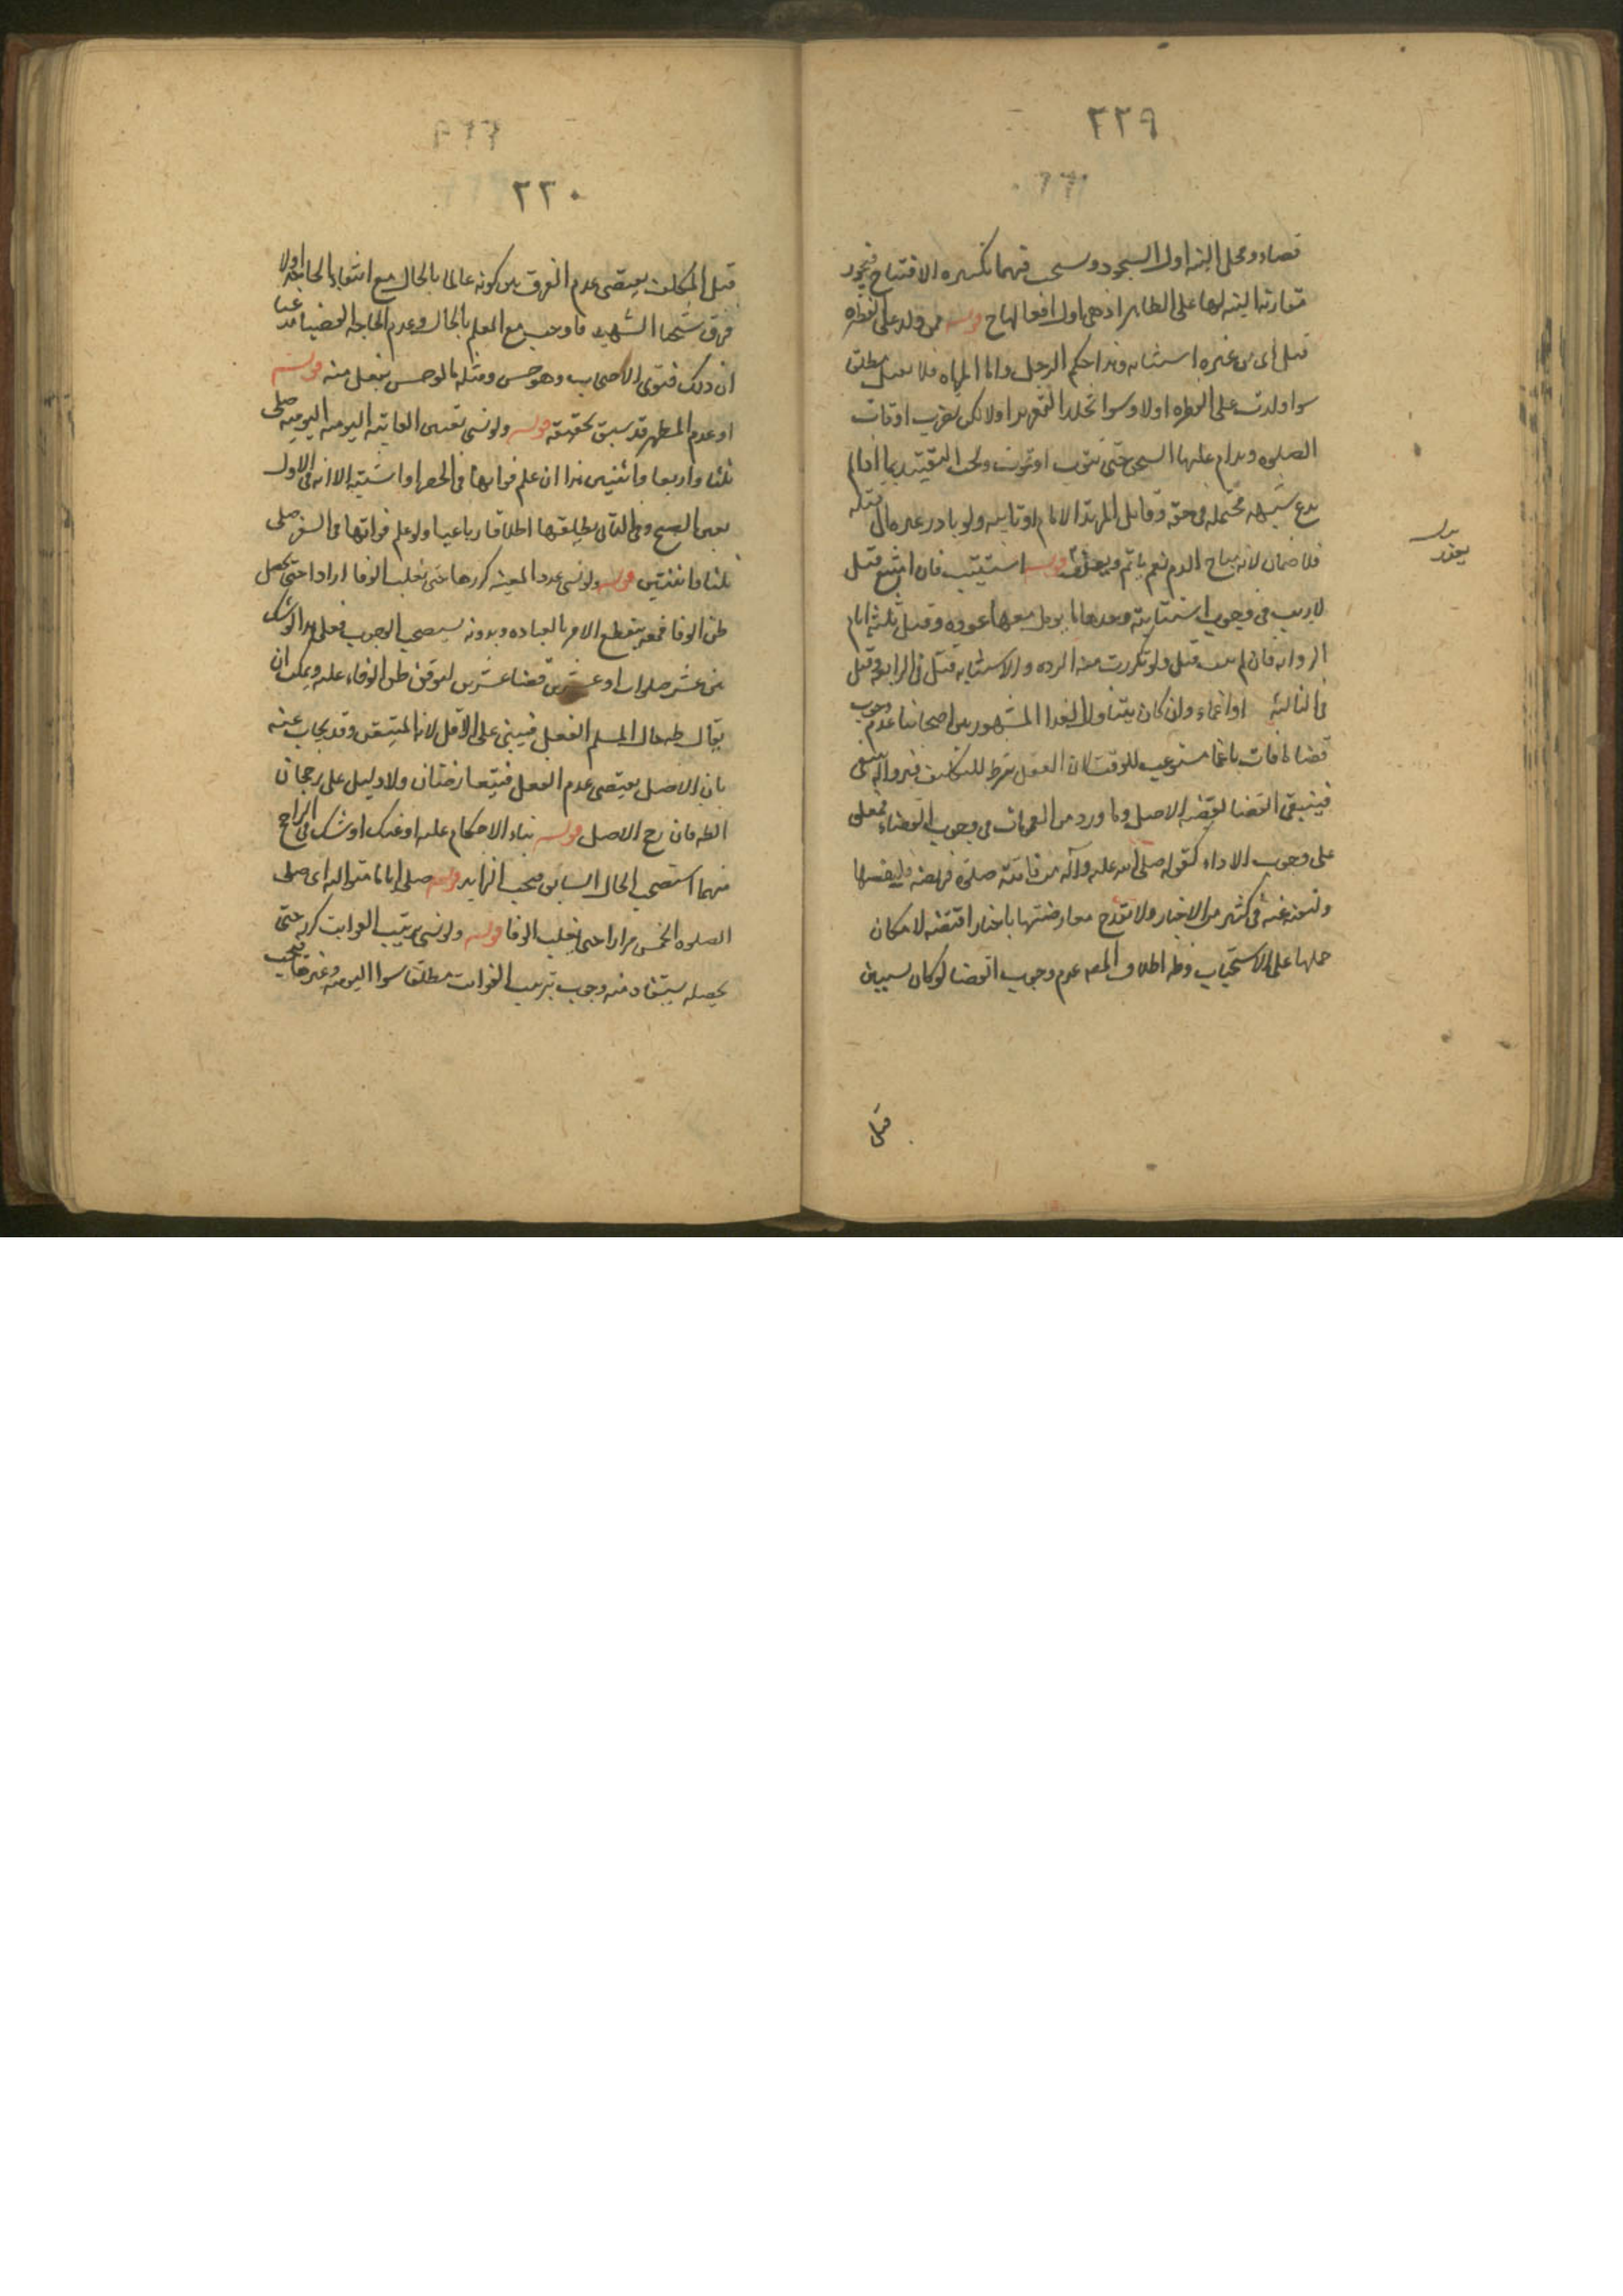 ٢٢٩
قضاء ومحل النية اول السجود ويستحب فيهما تكبيرة الافتتاح فيجوز
مقارنة النية لها على الظاهر اذ هي اول افعالها ح قوله من ولد على الفطرة
قتل اى من غيره استتابه وهذا حكم الرجل واما المراه فلا تقتل مطلقا
سوا ولدت على الفطره اولا وسوا تخلل التعزير اولا لكن تضرب اوقات
الصلوه ويدام عليها السجن حتى تتوب او تموت ويجب التقييد بما اذا لم
يدع شبهه محتمله في حقه وقاتل المرتد الامام او نايبه ولو بادر غيره الى قتله
فلا ضمان لانه مباح الدم نعم ياثم ويعزر قوله استتيب فان امتنع قتل
لا ريب في وجوب استتابته وحدها ما يومل معها عوده وقيل ثلثة ايام
الرواية فان لم يتب قتل ولو تكررت منه الرده والاستتابه قتل في الرابعة وقيل
في الثالثة او اغماء وان كان بتناول الغذا المشهور بين اصحابنا عدم وجوب
قضا ما فات باغما مستوعب للوقت لان العقل شرط للتكليف فبزواله ينتفى
فينتفى القضا لقضية الاصل وما ورد من العمومات في وجوب القضاء فمعلق
على وجوب الاداء كقوله صلى الله عليه وآله من فاتته صلوة فريضة فليقضها
ولنحوه عنه في كثير من الاخبار ولا تقدح معارضتها باخبار اقتضته لامكان
حملها على الاستحباب وظ اطلاق المص عدم وجوب القضا لو كان بسبب من
بدل
يعزر
قبل
٢٢٠
قبل المكلف يقتضى عدم الفرق بين كونه عالما بالحال مع انتفاء الحاجة اولا
فرق شيخنا الشهيد فاوجب مع العلم بالحال وعدم الحاجة القضا مدعيا
ان ذلك فتوى الاصحاب وهو حسن ومثله ما لو حصل بفعل منه قوله
او عدم المطهر قد سبق تحقيقه قوله ولو نسى تعيين الفايتة اليومية اليومية صلى
ثلثا واربعا واثنتين هذا ان علم فواتها في الحضر او اشتبه الا انه في الاول
يعين الصبح وفي الثانى يطلقها اطلاقا رباعيا ولو علم فواتها في السفر صلى
ثلثا واثنتين قوله ولو نسى عدد المعينة كررها حتى يغلب الوفا ارادا حتى يحصل
ظن الوفا فمعه ينقطع الامر بالعباده وبدونه يستصحب الوجوب فعلى هذا لو شك
بين عشر صلوات او عشرين قضا عشرين لتوقف ظن الوفاء عليه ويمكن ان
يقال ظ حال المسلم الفعل فيبنى على الاقل لانه المتيقن وقد يجاب عنه
بان الاصل يقتضى عدم الفعل فيتعارضان ولا دليل على رجحان
الظ فان رجح الاصل قوله بناء الاحكام عليه او عكس او شك في الراجح
منهما استصحب الحال السابق فيجب الزايد قوله صلى اياما متوالية اى صلى
الصلوه الخمس مرارا حتى يغلب الوفا قوله ولو نسى ترتيب الفوايت كرر حتى
يحصله يستفاد منه وجوب ترتيب الفوايت مطلقا سوا اليومية وغيرها فيجب